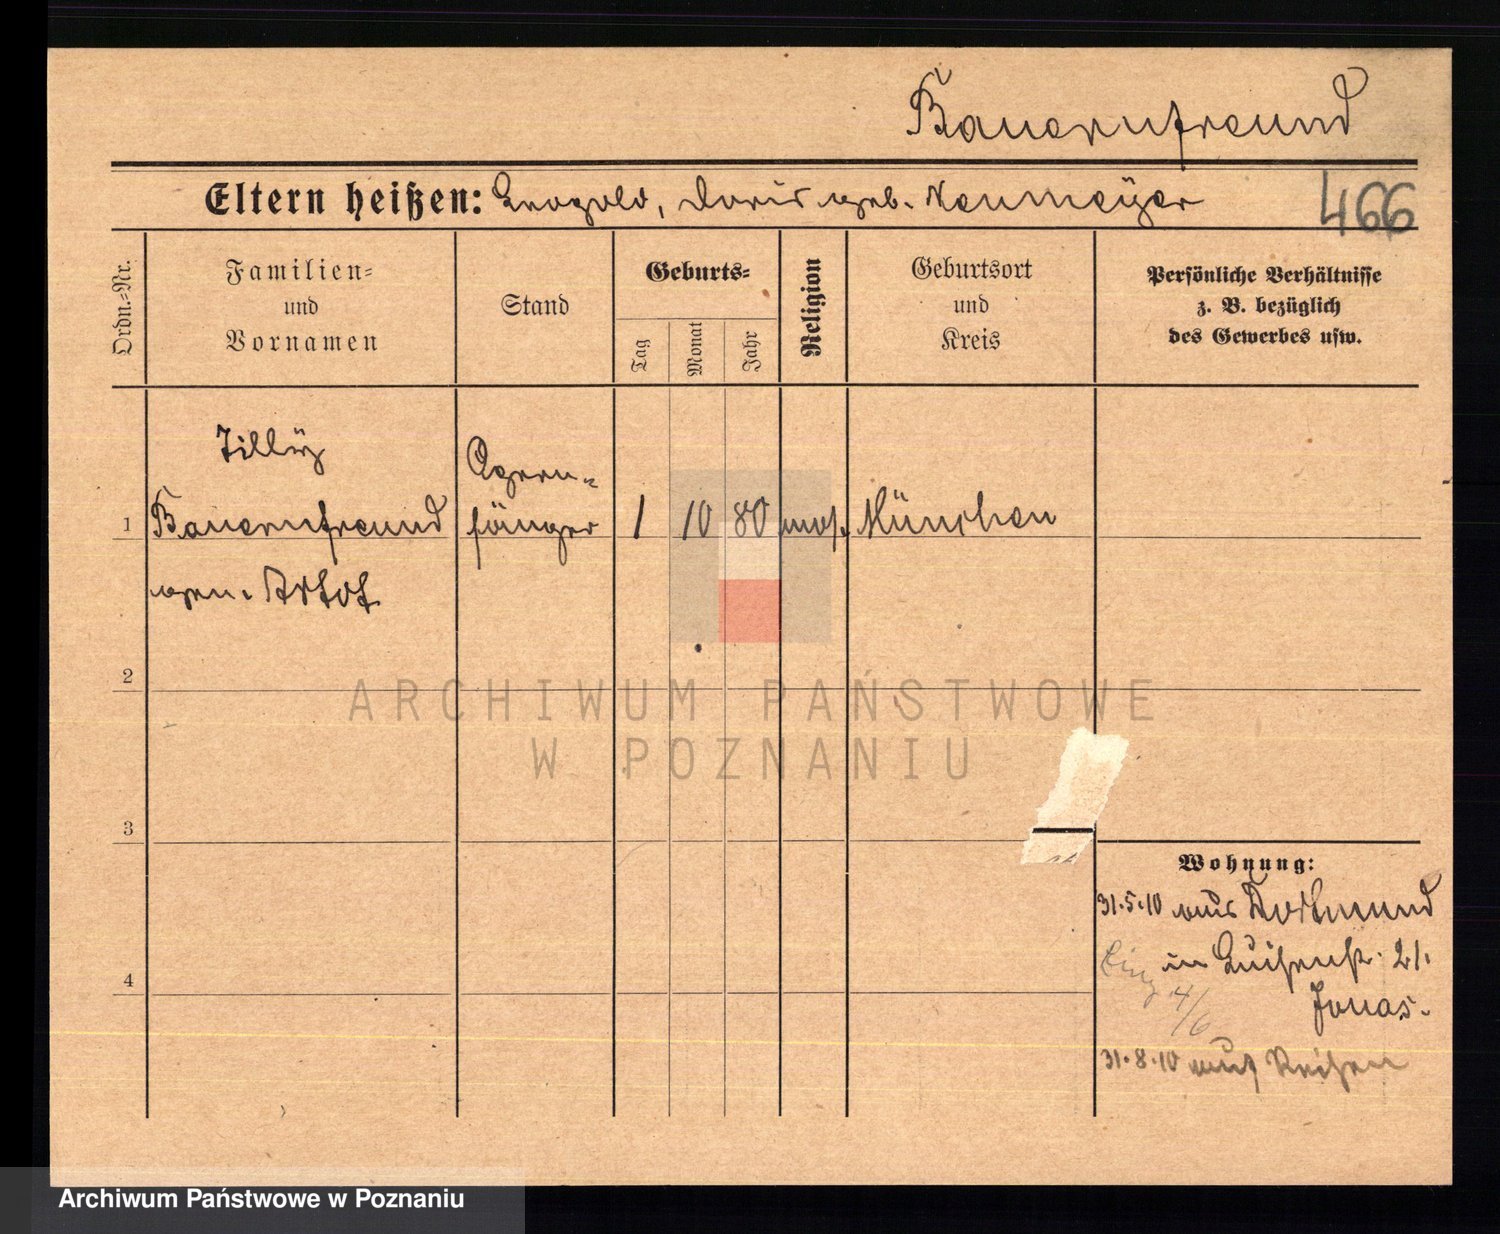 Bauernfreund
Eltern heißen: Leopold, Doris geb. Neumeÿer
466
Ordn.=Nr.
Familien=
und
Vornamen
Stand
Geburts=
Tag
Monat
Jahr
Religion
Geburtsort
und
Kreis
Persönliche Verhältnisse
z. B. bezüglich
des Gewerbes usw.
Tillÿ
Bauernfreund
gen.
Opern=
sänger
1
1
10
80
mos.
München
2
3
4
Wohnung:
31.5.10 aus Dortmund
in Luisenstr. 21.
Jonas.
4/6
31.8.10 auf Reisen
ARCHIWUM PAŃSTWOWE
W POZNANIU
Archiwum Państwowe w Poznaniu